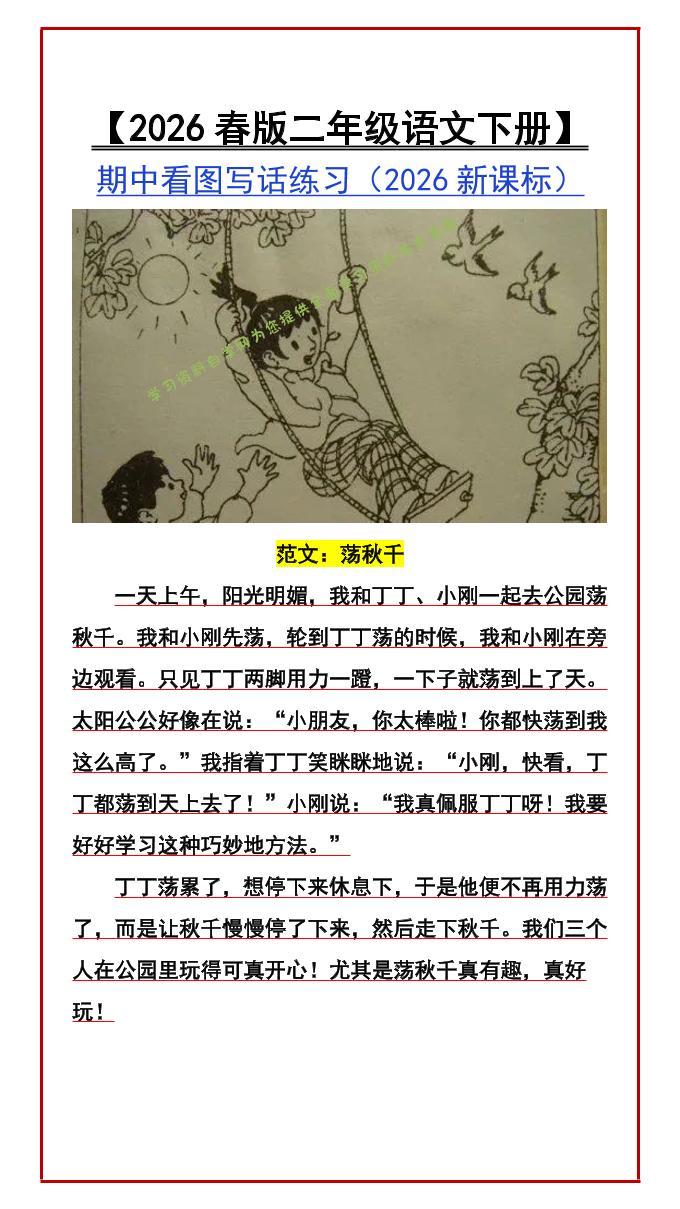 【2026春版二年级语文下册】
期中看图写话练习（2026新课标）
范文：荡秋千
一天上午，阳光明媚，我和丁丁、小刚一起去公园荡
秋千。我和小刚先荡，轮到丁丁荡的时候，我和小刚在旁
边观看。只见丁丁两脚用力一蹬，一下子就荡到上了天。
太阳公公好像在说：“小朋友，你太棒啦！你都快荡到我
这么高了。”我指着丁丁笑眯眯地说：“小刚，快看，丁
丁都荡到天上去了！”小刚说：“我真佩服丁丁呀！我要
好好学习这种巧妙地方法。”
丁丁荡累了，想停下来休息下，于是他便不再用力荡
了，而是让秋千慢慢停了下来，然后走下秋千。我们三个
人在公园里玩得可真开心！尤其是荡秋千真有趣，真好
玩！